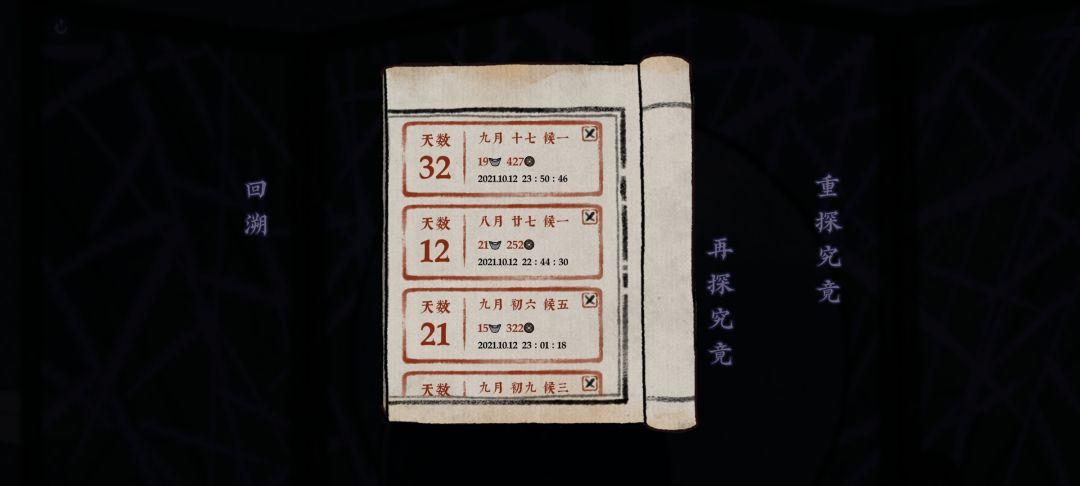 回溯
天数
32
九月 十七 候一
19 427
2021.10.12 23:50:46
天数
12
八月 廿七 候一
21 252
2021.10.12 22:44:30
天数
21
九月 初六 候五
15 322
2021.10.12 23:01:18
天数
九月 初九 候三
再探究竟
重探究竟